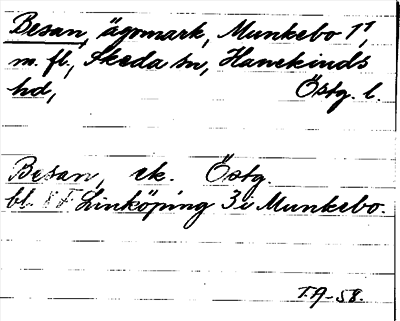 Besan, ägomark, Munkebo 1¹,
m. fl., Skeda sn, Hanekinds
hd, Östg. l.
Besan, ek. Östg.
bl. 8 F Linköping 3 i Munkebo.
T.A-58.